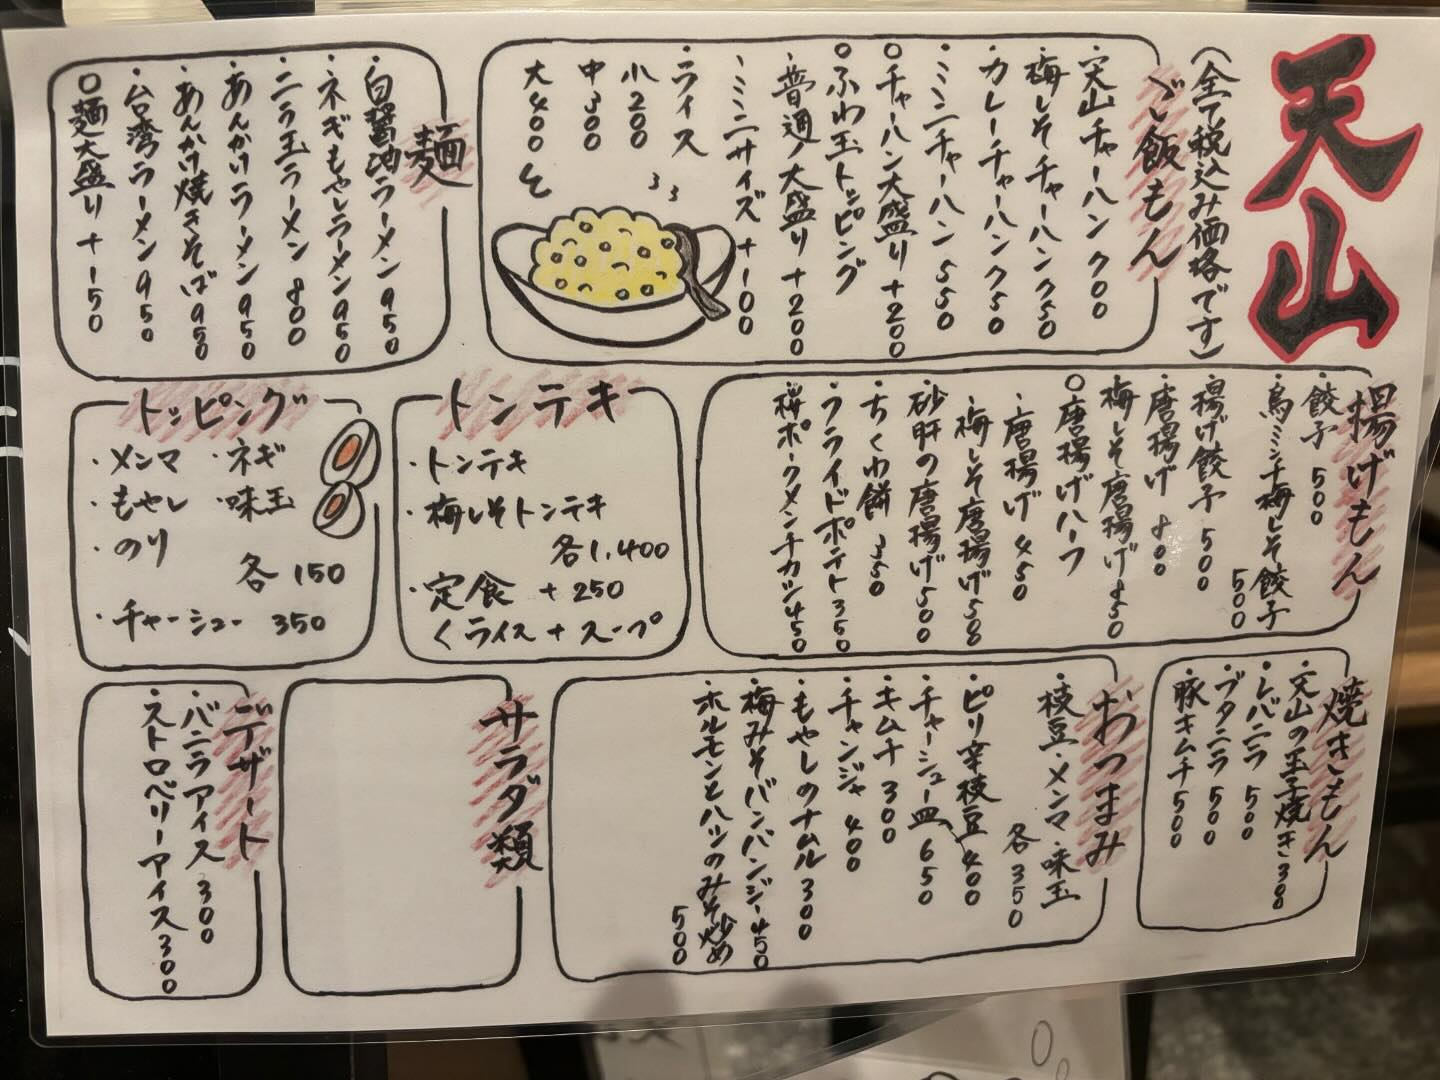 天山
(全て税込み価格です)
ごし飯もん
・天山チャーハン700
・梅しそチャーハン750
・カレーチャーハン750
・ミニチャーハン550
○チャーハン大盛り+200
○ふわ玉トッピング
・普通/大盛り+200
・ミニミニサイズ+100
・ライス
小200
中300
大400
麺
・白醤油ラーメン950
・ネギもやしラーメン950
・ニラ玉ラーメン800
・あんかけラーメン950
・あんかけ焼きそば950
・台湾ラーメン950
○麺大盛り+150
揚げもん
・餃子500
・鳥ミンチ梅しそ餃子
500
・揚げ餃子500
・唐揚げ800
・梅しそ唐揚げ850
○唐揚げハーフ
・唐揚げ450
・梅しそ唐揚げ500
・砂肝の唐揚げ500
・ちくわ餅350
・フライドポテト350
・桜ポークメンチカツ450
トンテキ
・トンテキ
・梅しそトンテキ
各1,400
・定食+250
くライス+スープ
トッピング
・メンマ ・ネギ
・もやし ・味玉
・のり
各150
・チャーシュー350
焼きもん
・天山の玉子焼き300
・レバニラ500
・ブタニラ500
・豚キムチ500
おつまみ
・枝豆・メンマ・味玉
各350
・ピリ辛枝豆400
・チャーシュー皿650
・キムチ300
・チャンジャ400
・もやしのナムル300
・梅みそバンバンジー450
・ホルモンとハツのみそ炒め
500
サラダ類
デザート
・バニラアイス300
・ストロベリーアイス300